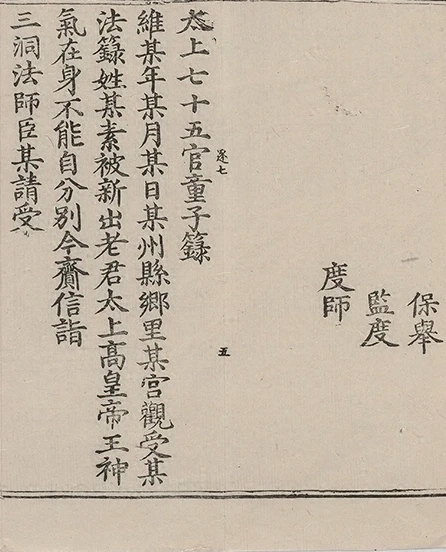 保舉
監度
度師
逐七
五
太上七十五官童子籙
維某年某月某日某州縣鄉里某宮觀受某
法籙姓某素被新出老君太上高皇帝王神
氣在身不能自分別今齎信詣
三洞法師臣某請受